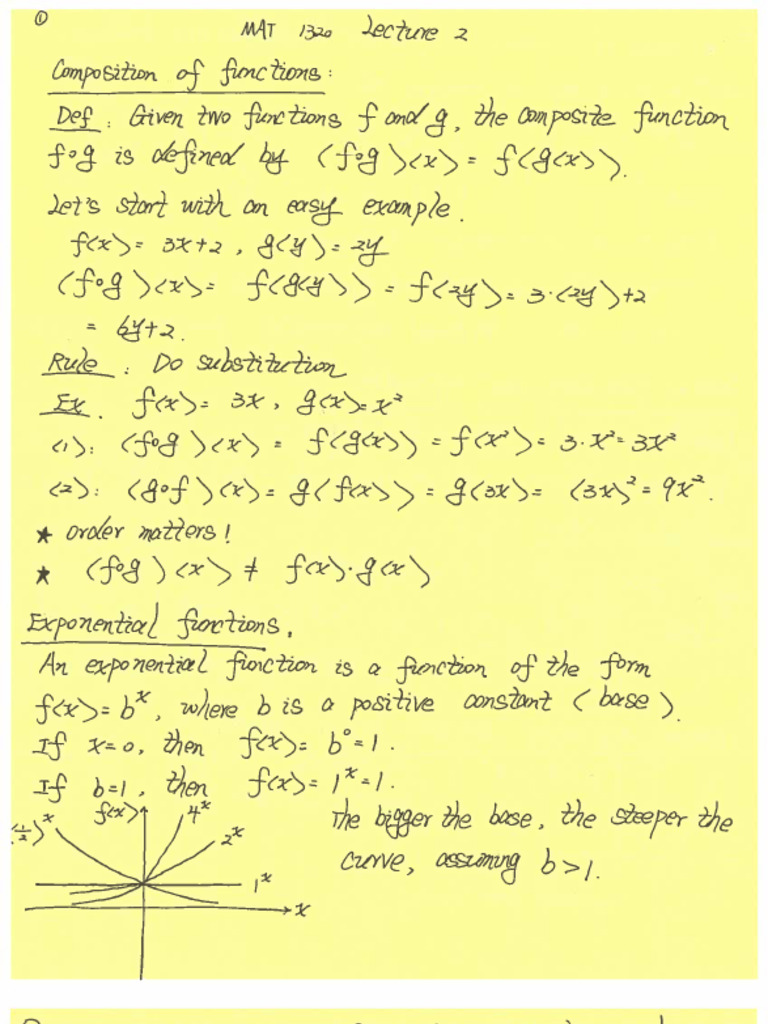 ①
MAT 1320 Lecture 2
Composition of functions:
Def: Given two functions f and g, the composite function
f∘g is defined by (f∘g)(x) = f(g(x)).
Let's start with an easy example.
f(x) = 3x+2, g(y) = 2y
(f∘g)(x) = f(g(y)) = f(2y) = 3·(2y)+2
= 6y+2.
Rule: Do substitution
Ex. f(x) = 3x, g(x) = x²
(1): (f∘g)(x) = f(g(x)) = f(x²) = 3·x² = 3x²
(2): (g∘f)(x) = g(f(x)) = g(3x) = (3x)² = 9x².
★ order matters!
★ (f∘g)(x) ≠ f(x)·g(x)
Exponential functions.
An exponential function is a function of the form
f(x) = bˣ, where b is a positive constant (base).
If x=0, then f(x) = b⁰ = 1.
If b=1, then f(x) = 1ˣ = 1.
f(x) 4ˣ
(½)ˣ 2ˣ
1ˣ
x
The bigger the base, the steeper the
curve, assuming b>1.